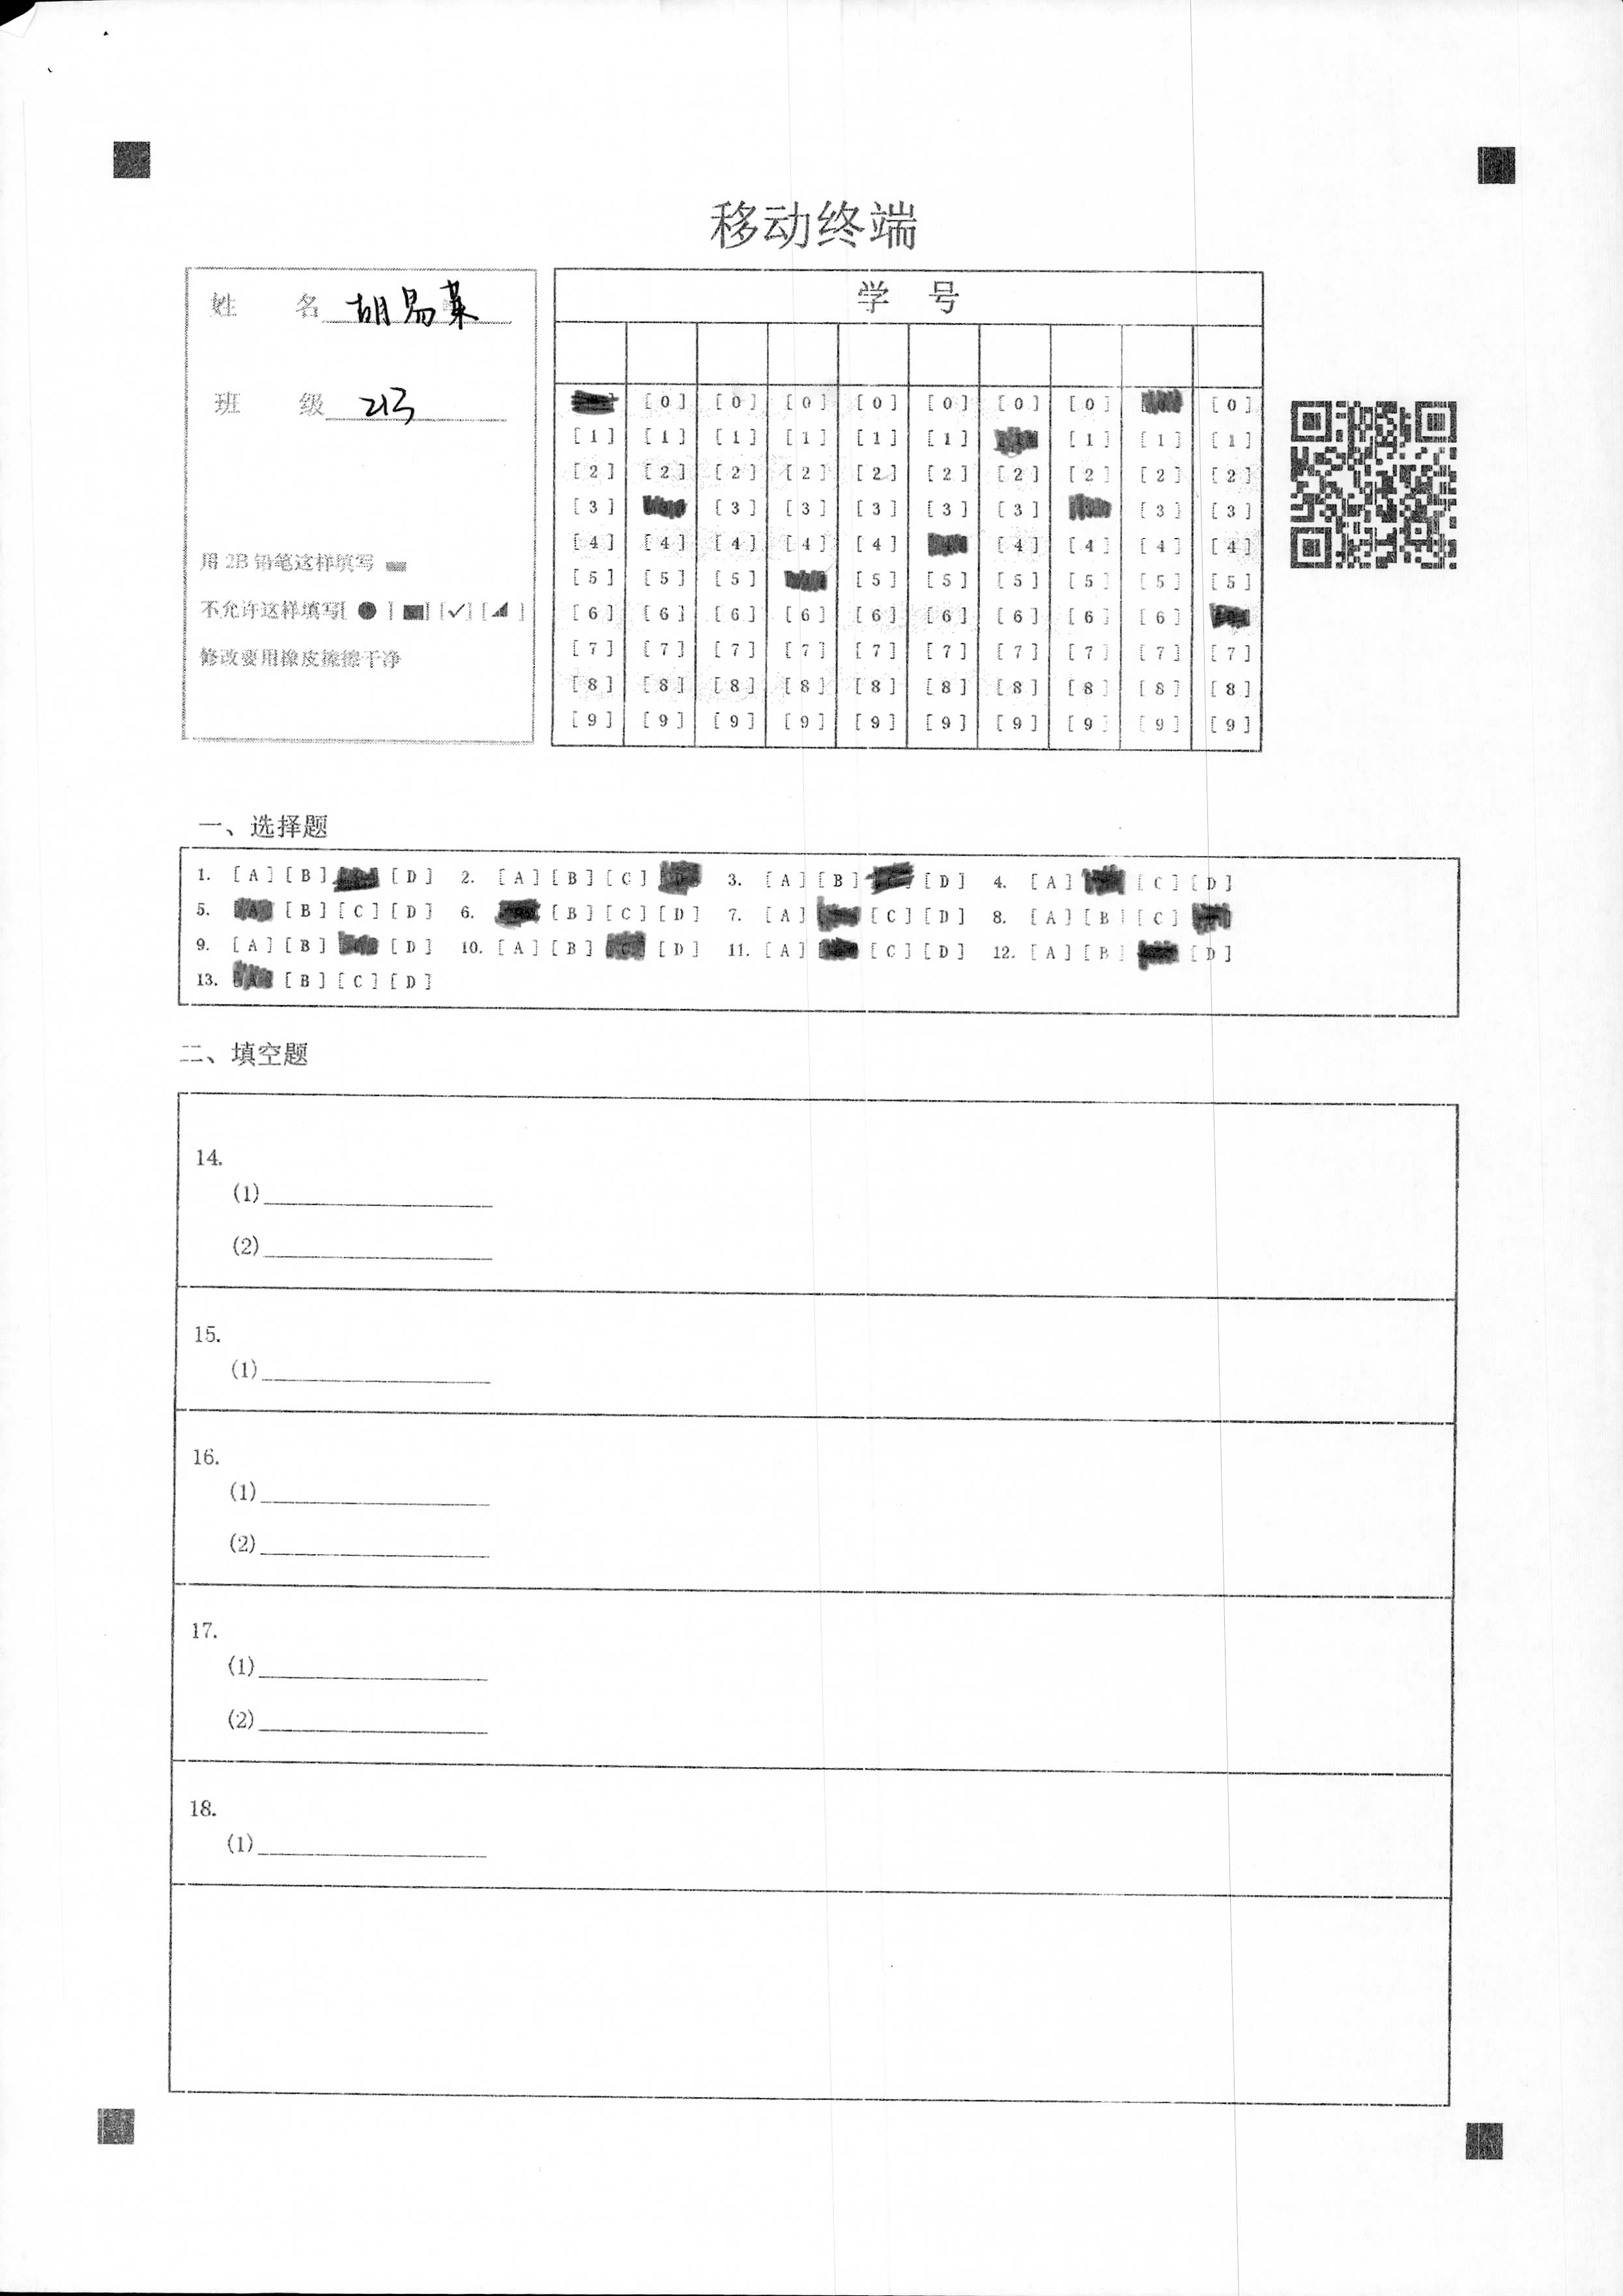 移动终端
姓 名 胡易莱
班 级 213
用 2B 铅笔这样填写
不允许这样填写[ ● ] [■] [✓] [◢ ]
修改要用橡皮擦擦干净
学 号
[0] [0] [0] [0] [0] [0] [0] [0]
[1] [1] [1] [1] [1] [1] [1] [1] [1]
[2] [2] [2] [2] [2] [2] [2] [2] [2] [2]
[3] [3] [3] [3] [3] [3] [3] [3]
[4] [4] [4] [4] [4] [4] [4] [4] [4]
[5] [5] [5] [5] [5] [5] [5] [5] [5]
[6] [6] [6] [6] [6] [6] [6] [6] [6]
[7] [7] [7] [7] [7] [7] [7] [7] [7] [7]
[8] [8] [8] [8] [8] [8] [8] [8] [8] [8]
[9] [9] [9] [9] [9] [9] [9] [9] [9] [9]
一、选择题
1. [A] [B] [D] 2. [A] [B] [C] 3. [A] [B] [D] 4. [A] [C] [D]
5. [B] [C] [D] 6. [B] [C] [D] 7. [A] [C] [D] 8. [A] [B] [C]
9. [A] [B] [D] 10. [A] [B] [D] 11. [A] [C] [D] 12. [A] [B] [D]
13. [B] [C] [D]
二、填空题
14.
(1)
(2)
15.
(1)
16.
(1)
(2)
17.
(1)
(2)
18.
(1)